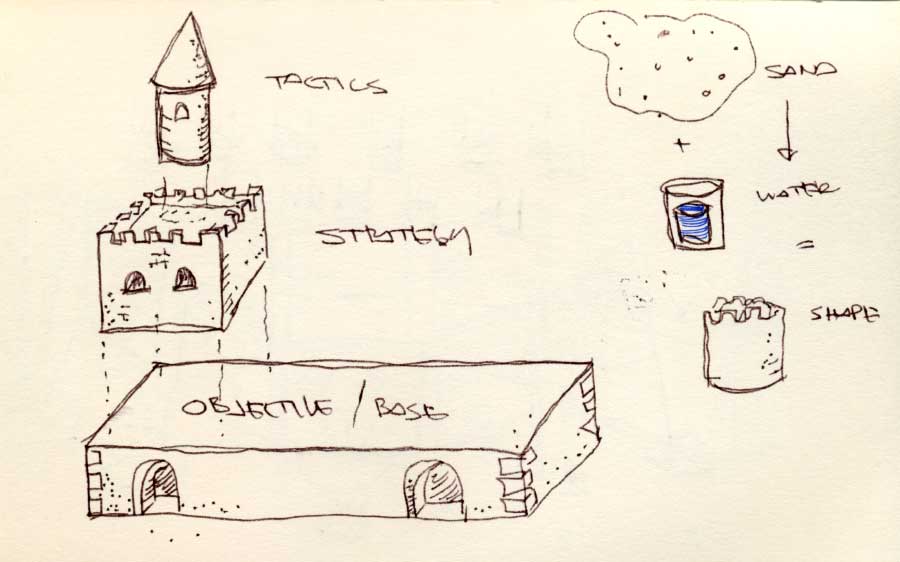 TACTICS
STRATEGY
OBJECTIVE / BASE
SAND
+
WATER
=
SHAPE